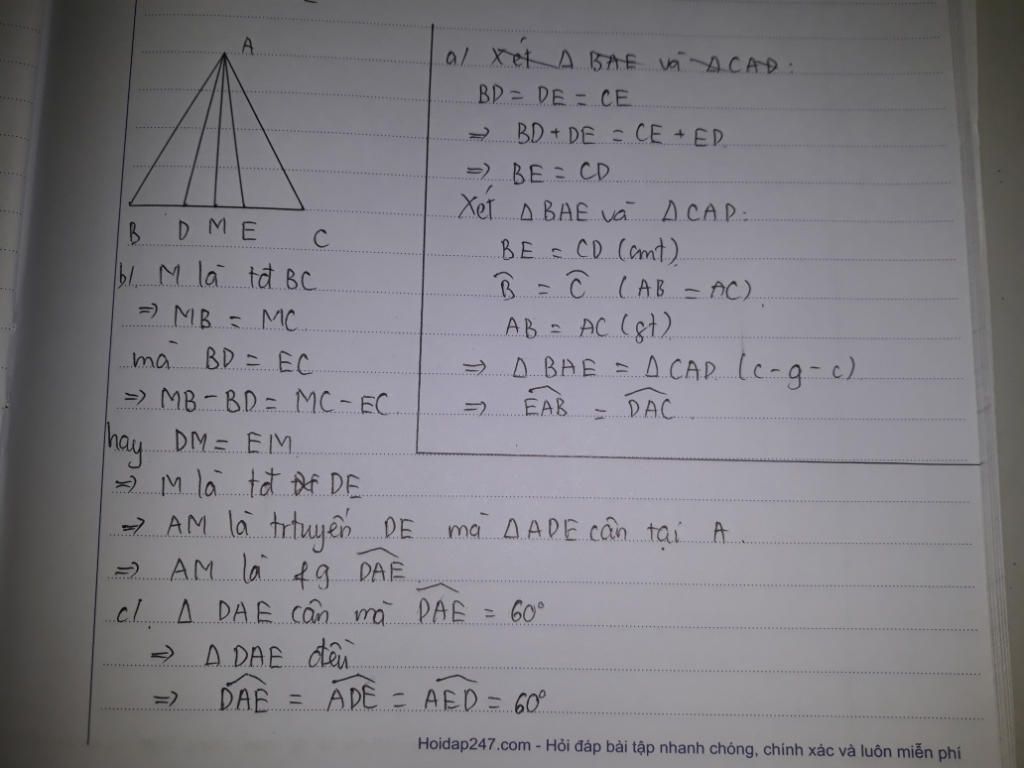 A
B D M E C
a/ Xét Δ BAE và ΔCAD:
BD = DE = CE
=> BD + DE = CE + ED
=> BE = CD
Xét Δ BAE và Δ CAD:
BE = CD (cmt)
B̂ = Ĉ (AB = AC)
AB = AC (gt)
=> Δ BAE = Δ CAD (c-g-c)
=> EAB = DAC
b/. M là tđ BC
=> MB = MC
mà BD = EC
=> MB - BD = MC - EC
hay DM = EM
=> M là tđ DE
=> AM là trtuyến DE mà Δ ADE cân tại A.
=> AM là fg DAE
c/. Δ DAE cân mà DAE = 60°
=> Δ DAE đều
=> DAE = ADE = AED = 60°
Hoidap247.com - Hỏi đáp bài tập nhanh chóng, chính xác và luôn miễn phí